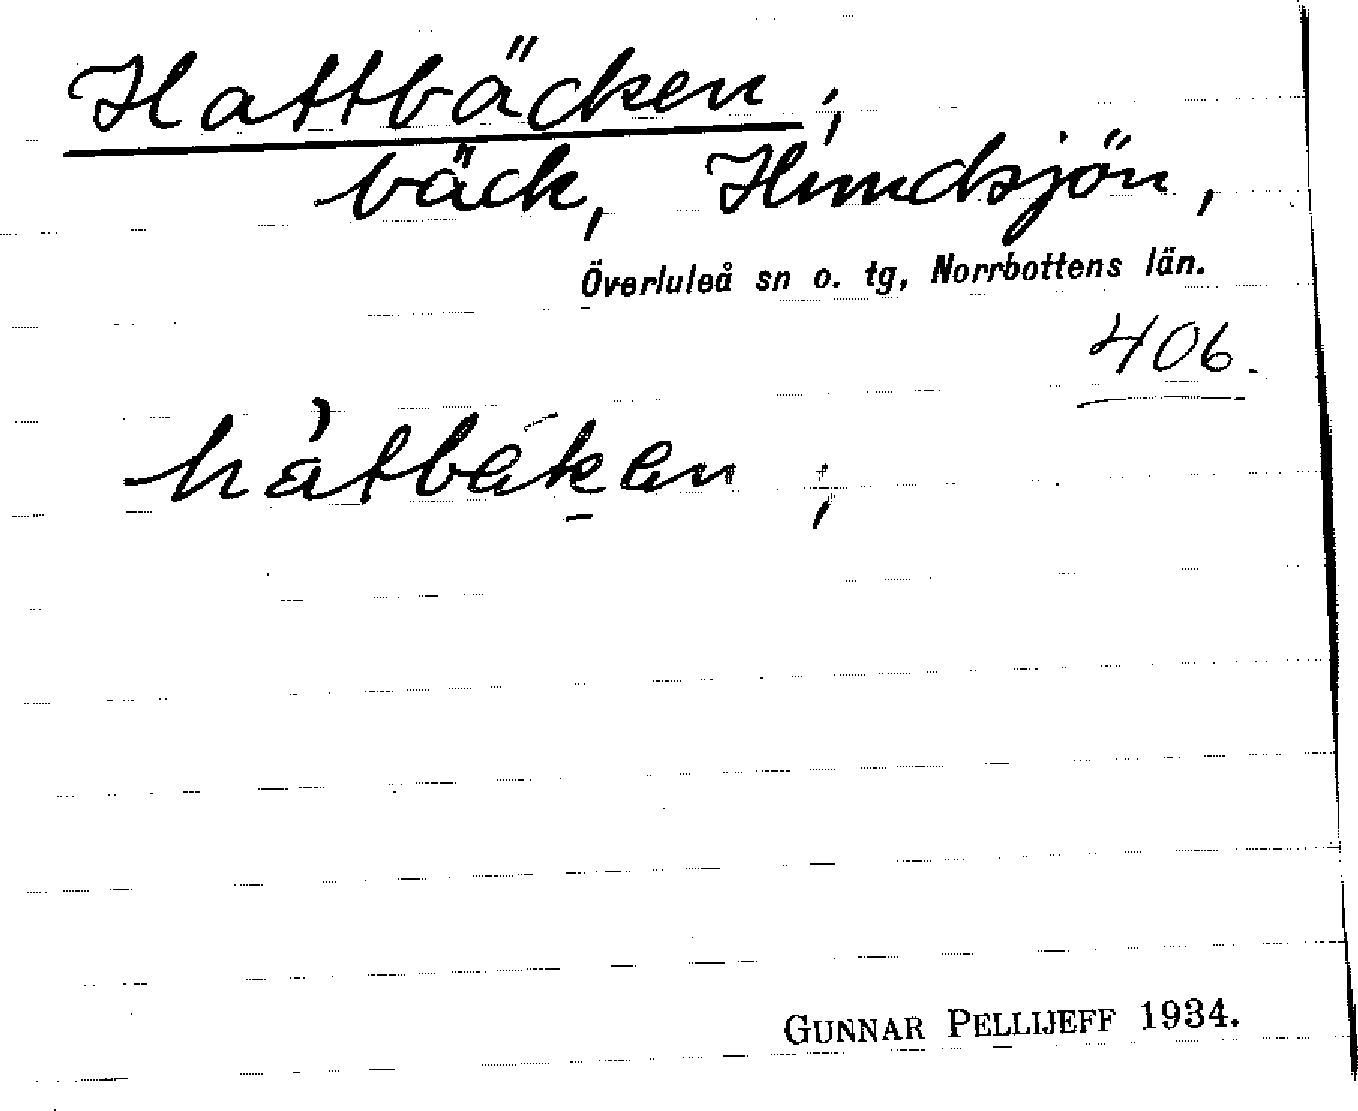 Hattbäcken,
bäck, Hundsjön,
Överluleå sn o. tg, Norrbottens län.
406.
GUNNAR PELLIJEFF 1934.